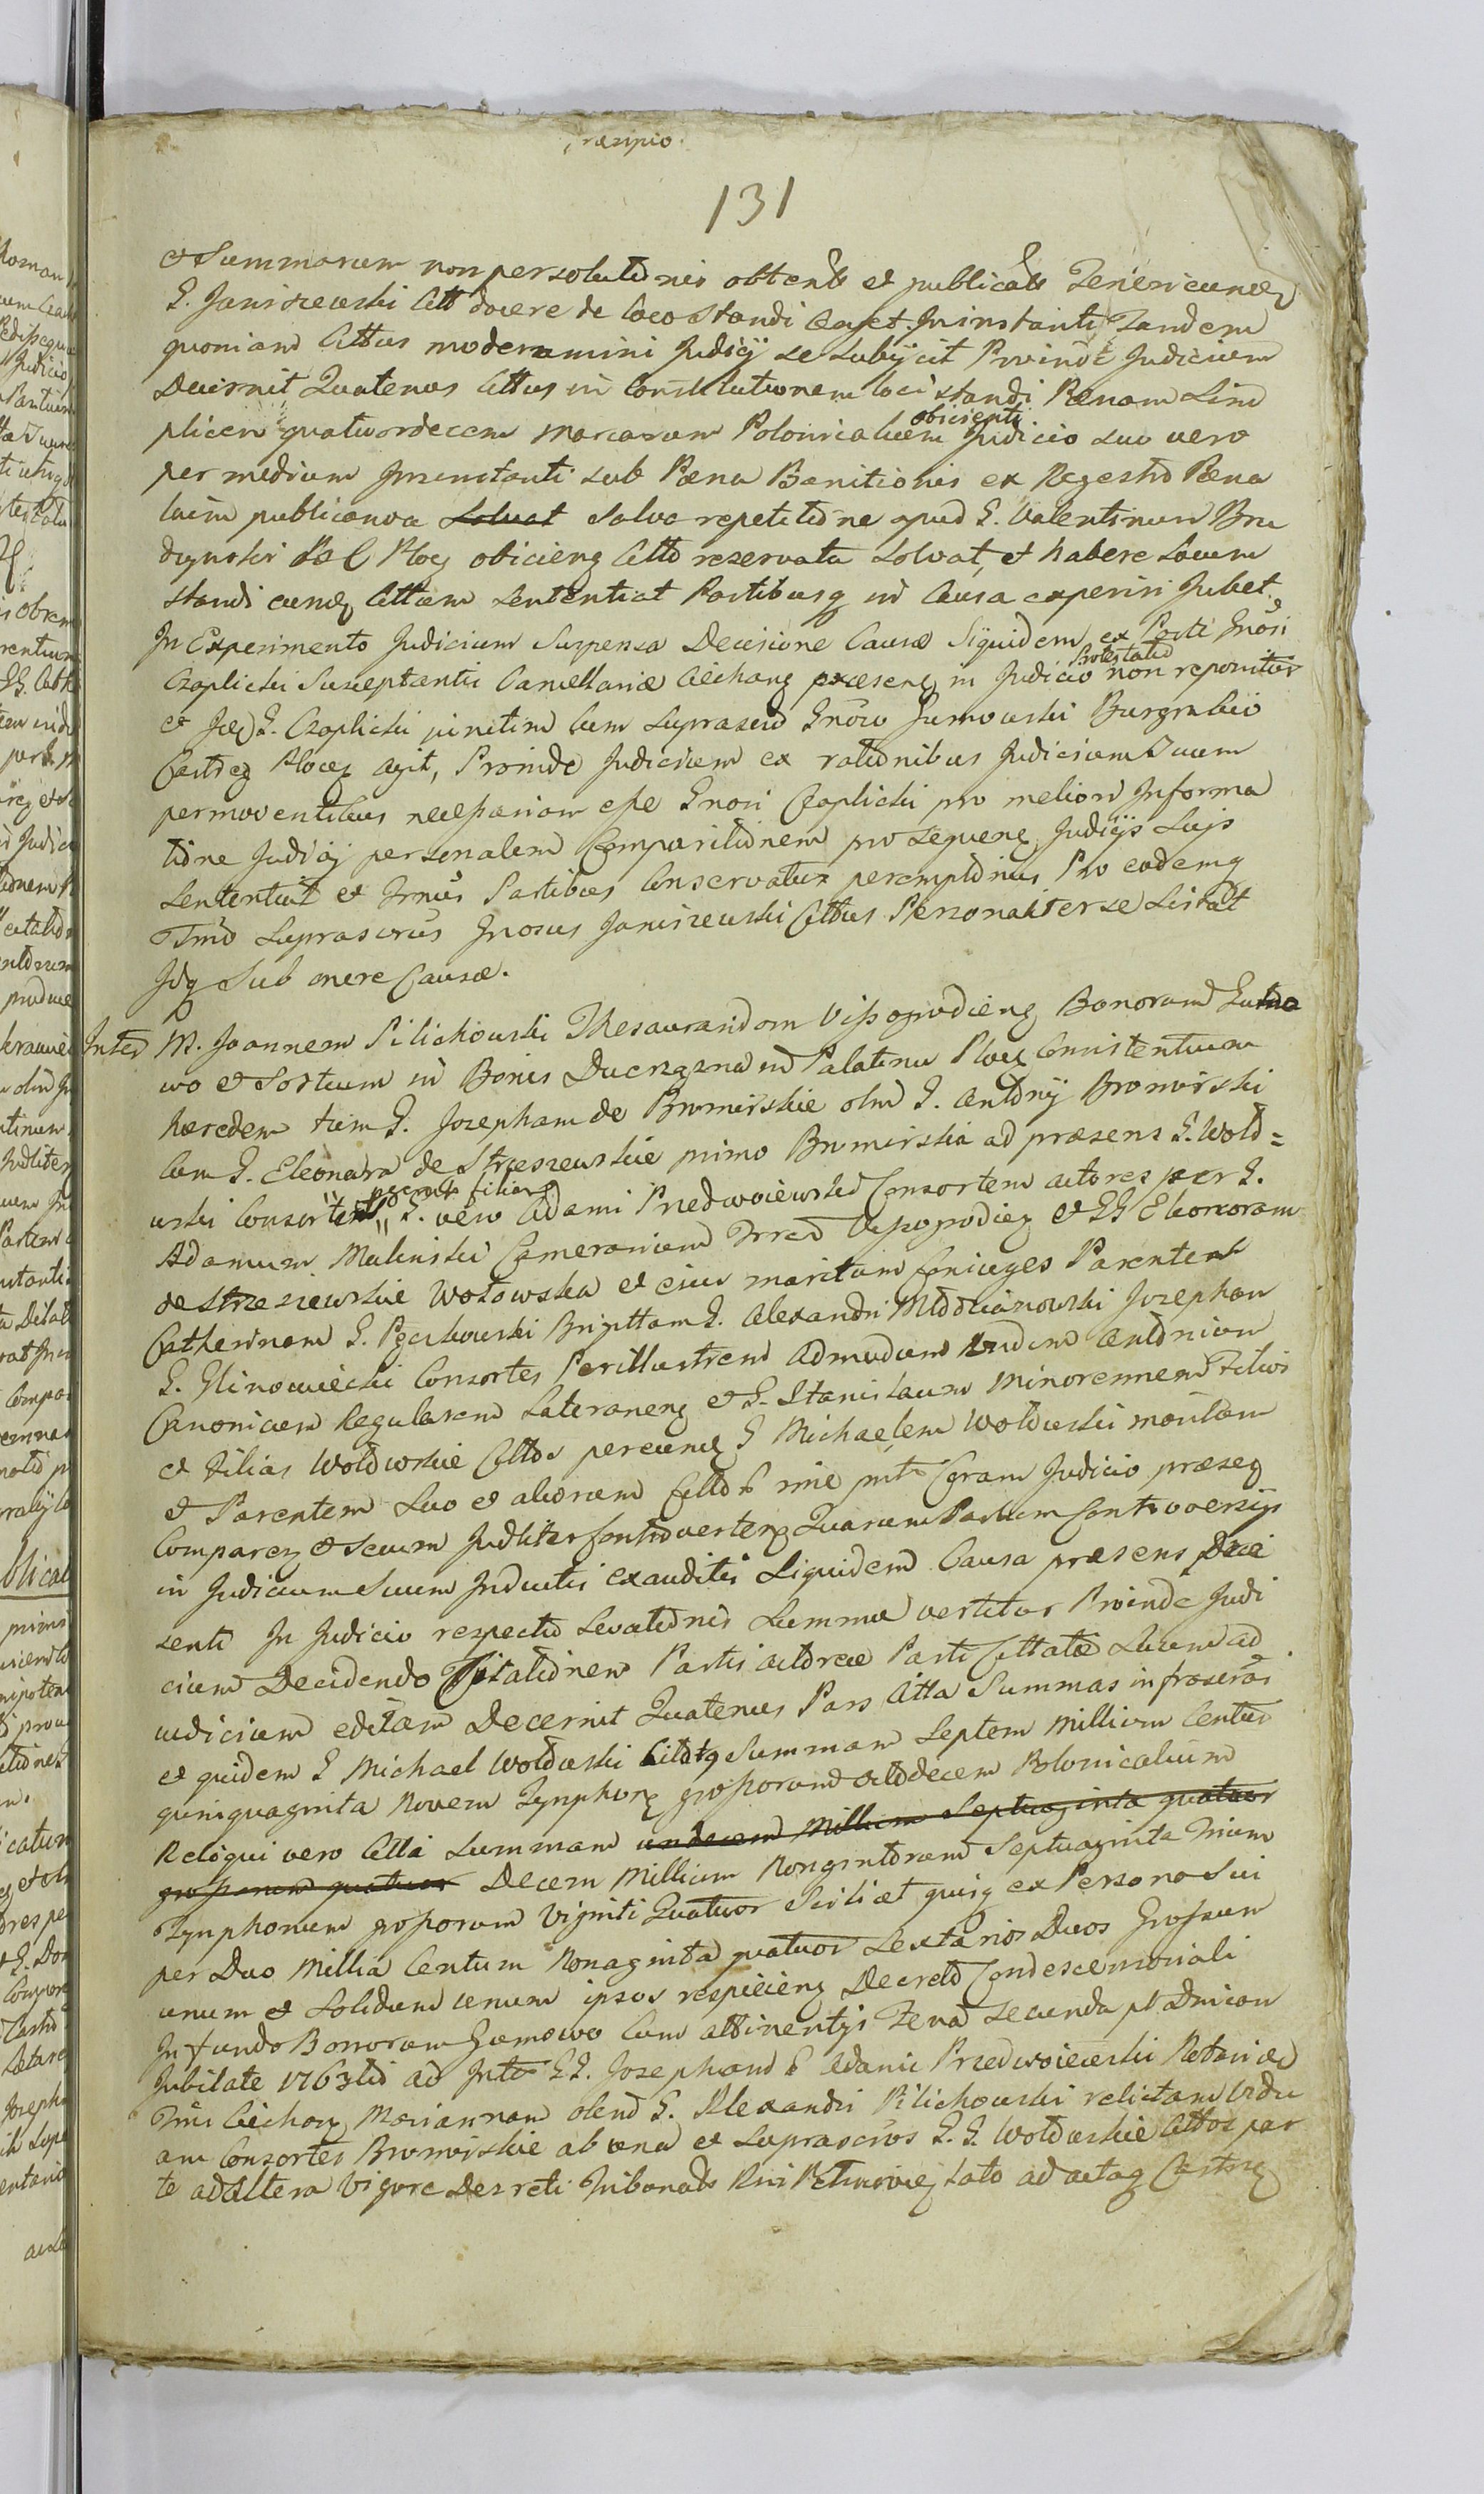 131
et Summarum non persolutõnis obtents et publicats Tenericunq
G. Janiszewski Citt docere de loco standi Ca et. In instanti Tandem
quoniam Cittus moderamini Judicÿ se subÿcit Proinde Judicium
Decernit Quatenus Cittus in Constitutionem loci standi Pœnam Sim
plicem quatuordecem marcarum Polonicalium obicienti Judicio suo vero
per medium Inzenstanti sub Pœna Banitionis ex Regestro Pœna
lium publicanda Solvat salva repetitõne apud G. Valentinum Bru
dzynski Plocz obicienz Citto reservata Solvat, et habere locum
standi eunq Cittum Sententiat Partibusq in Causa experiri Jubet.
In Experimento Judicium Suspensa Decisione Causæ Siquidem ex Parte Gnosi
Czaplicki Susceptantis Cancellariæ Ciechanz præsenq in Judicio Protestatio non reponitur
et G. Czaplicki vinctim cum suprascro Gnoso Jumowski Burgrabio
Castrez Plocez agit, Proinde Judicium ex ratiõnibus Judicium Suum
permoventibus necessariam esse Gnosi Czaplicki pro meliori Informa
tiõne Judicÿ personalem Comparitiõnem pro sequenq Judicÿs Suis
Sententiat et Trnus Partibus Conservatur peremptõrius Pro eodemq
Trno Suprascrus Gnosus Janiszewski Cittus Personaliter se Sistat
Idq Sub onere Causæ.
Inter M. Joannem Pilichowski Thesauraridem Vissogrodienq Bonorum Gumo
wo et Sortium in Bonis Ducrazna in Palatinu Plocz Consistentium
hæredem tum G. Josepham de Bromirskie olim G. Antonÿ Bromirski
cum G. Eleonara de Strzeszewskie primo Bromirska ad præsens G. Woło=
wski Consorte procrt filiam G. vero Adami Przedwoiewski Consortem actores per G.
Adamum Malinski Camerarium Trrarum Vissogrodiez et GG Eleonoram
de Strzeszewskie Wołowska et eius maritum Coniuges Parentes
Catherinam G. Pęczkowski Brigittam G. Alexandri Młodzianowski Josepham
G. Glinowiecki Consortes Perillustrem Admodum Rndum Antonium
Canonicum Regularem Lateranenq et G. Stanislaum Minorennem Filios
et Filias Wołowskie Cittos per eunq G Michaelem Wołowski maritum
et Parentem Suo et aliorum Cittor nie pnte Coram Judicio præseq
Comparez et secum Judliter Controvertenq Quarum Partium Controversijs
in Judicium Suum Inductis exauditis Siquidem Causa præsens præ
senti In Judicio respectu Levatiõnis Summæ vertitur Proinde Judi
cium Decidendo Citatiõnem Partis actoreæ Parti Cittatæ Suum ad
iudicium editam Decernit Quatenus Pars Citta Summas infrascras
et quidem G Michael Wołowski Cittq Summam Septem Millium Centum
quinquaginta Novem Tynphonq grossorum Octodecem Polonicalium
Reliqui vero Citti Summam undecem Millium Septuaginta quatuor
grossorum quatuor Decem Millium Nongentorum Septuaginta Trium
Tynphonum grossorum Viginti Quatuor Scilicet quisq ex Persona Sui
per Duo Millia Centum Nonaginta quatuor Sextarios Duos Grossum
unum et Solidum unum ipsos respicienq Decreto Condescensoriali
In fundo Bonorum Gumowo Cum attinentijs Feria Secunda pt Dnicam
Jubilate 1763tio ad Inter GG. Josepham Adami Przedwoiewski Notarii
Trris Ciechanz Mariannam olim G. Alexandri Pilichowski relictam Vidu
am Consortes Bromirskie ab una et Suprascros G.G. Wołowskie Cittos par
te ab altera Vigore Decreti Tribunals Rni Petricoviez Lato ad actaq Castrez